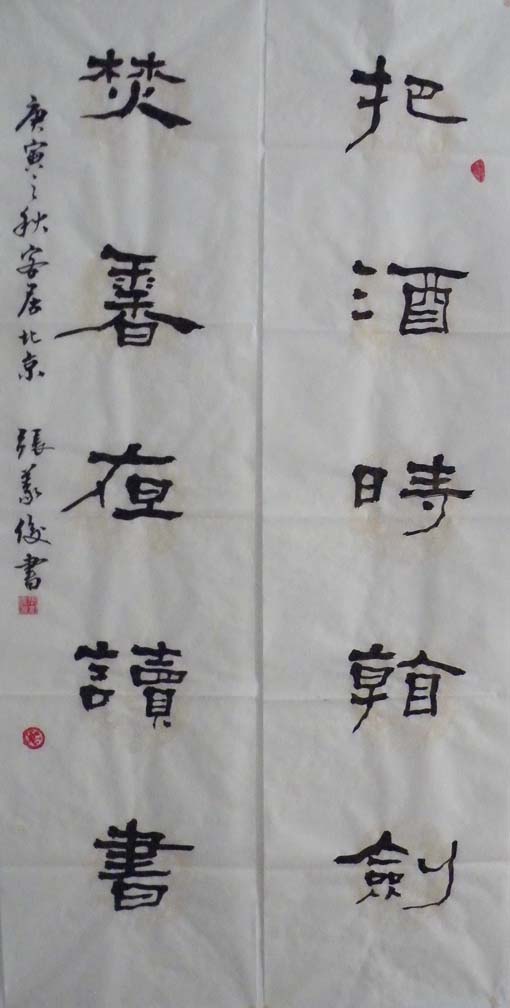 把酒時看劍
焚香夜讀書
庚寅之秋客居北京 張義俊書